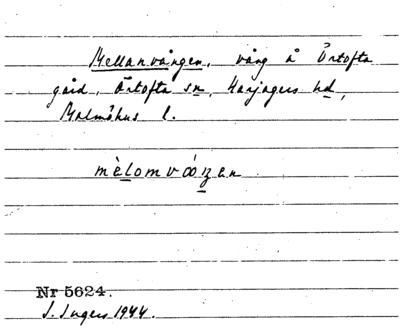 Mellanvången, vång å Örtofta
gård, Örtofta sn, Harjagers hd,
Malmöhus l.
mèlomvóŋen
Nr 5624.
I. Ingers 1944.